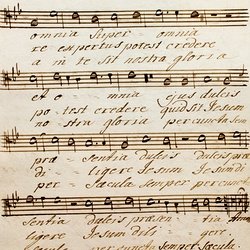 omnia super omnia
re expertus potest credere
a in te sit nostra gloria
et o - mnia ejus dulcis
po - test credere quid sit Jesum
no - stra gloria per cuncta sem
prae - sentia dulcis dulcis prae
di - ligere Jesum Jesum di
per - saecula semper per cun
sentia dulcis praesen - tia
ligere Jesum di - ligere.
saecula per cuncta semper saecula